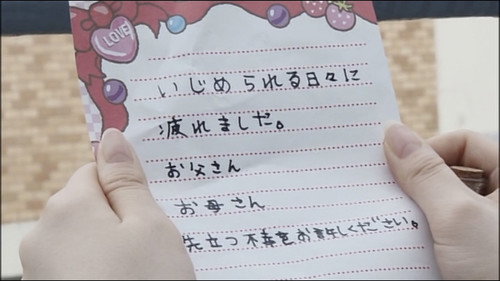 LOVE
いじめられる日々に
疲れました。
お父さん
お母さん
先立つ不孝をお許しください。